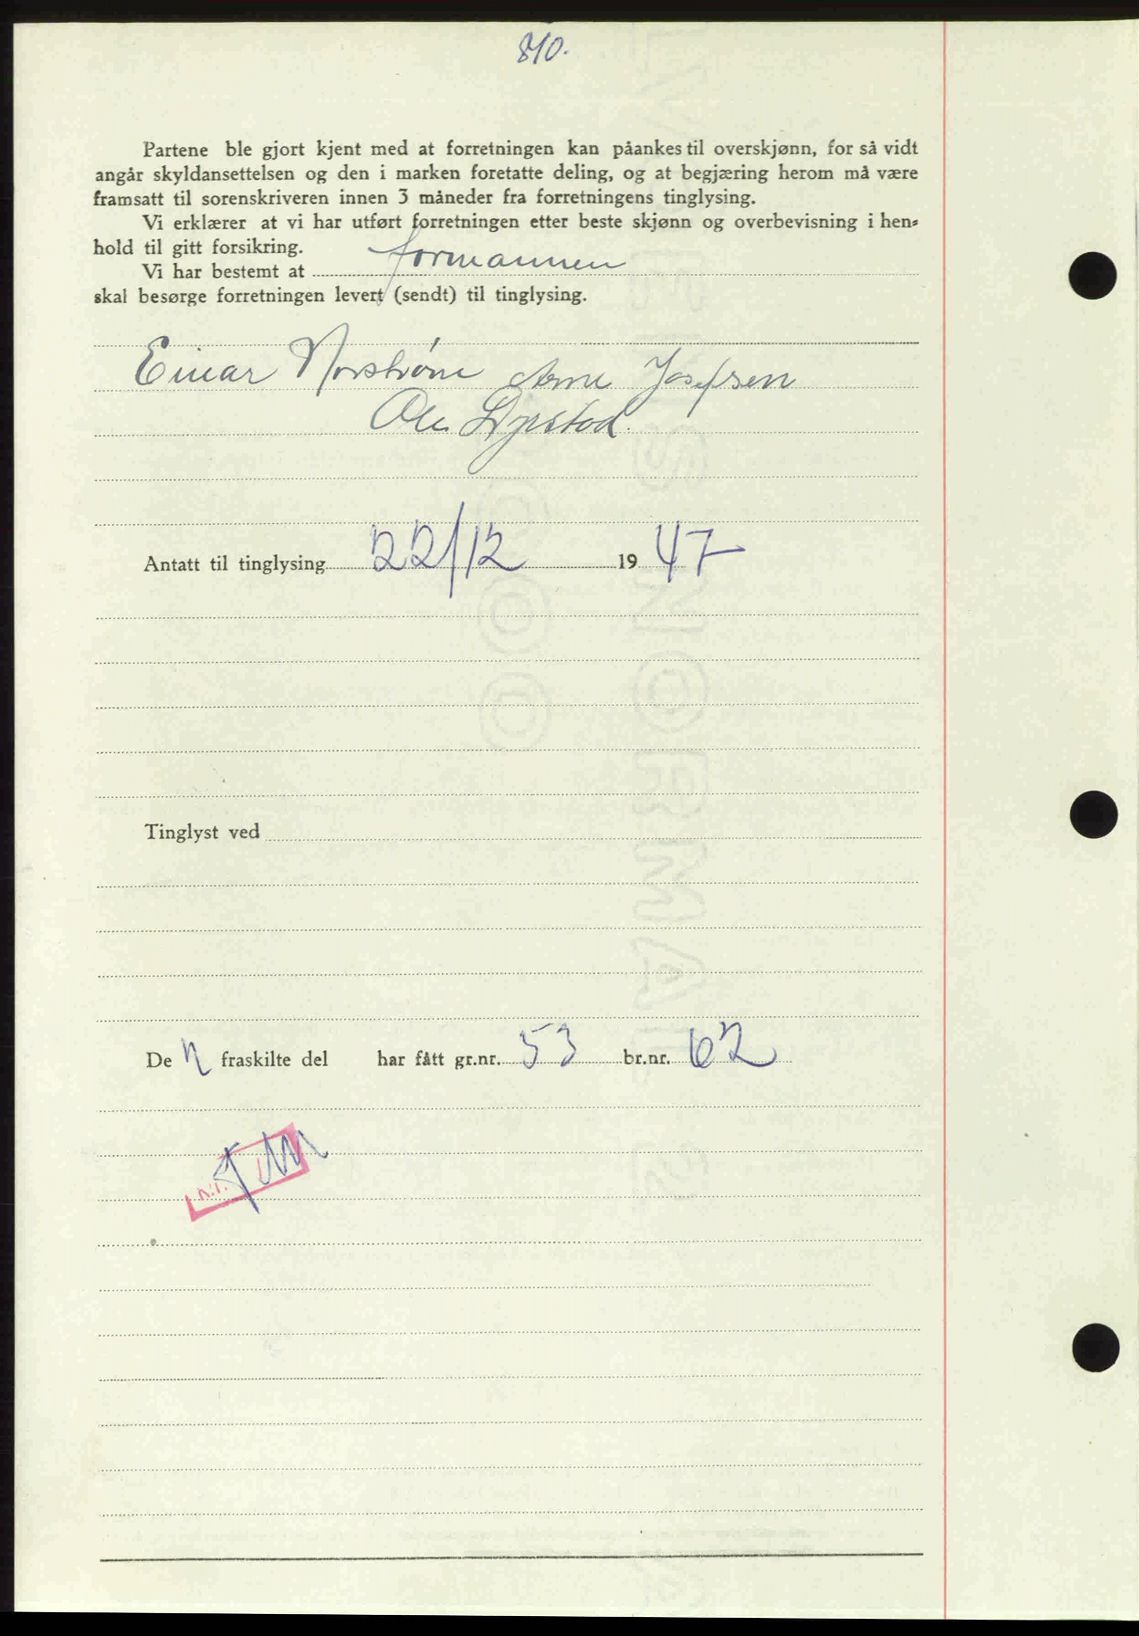 810.
Partene ble gjort kjent med at forretningen kan påankes til overskjønn, for så vidt
angår skyldansettelsen og den i marken foretatte deling, og at begjæring herom må være
framsatt til sorenskriveren innen 3 måneder fra forretningens tinglysing.
Vi erklærer at vi har utført forretningen etter beste skjønn og overbevisning i hen-
hold til gitt forsikring.
Vi har bestemt at formannen
skal besørge forretningen levert (sendt) til tinglysing.
Einar Arne Josefsen
Ole
Antatt til tinglysing 22/12 1947
Tinglyst ved
De n fraskilte del har fått gr.nr. 53 br.nr. 62